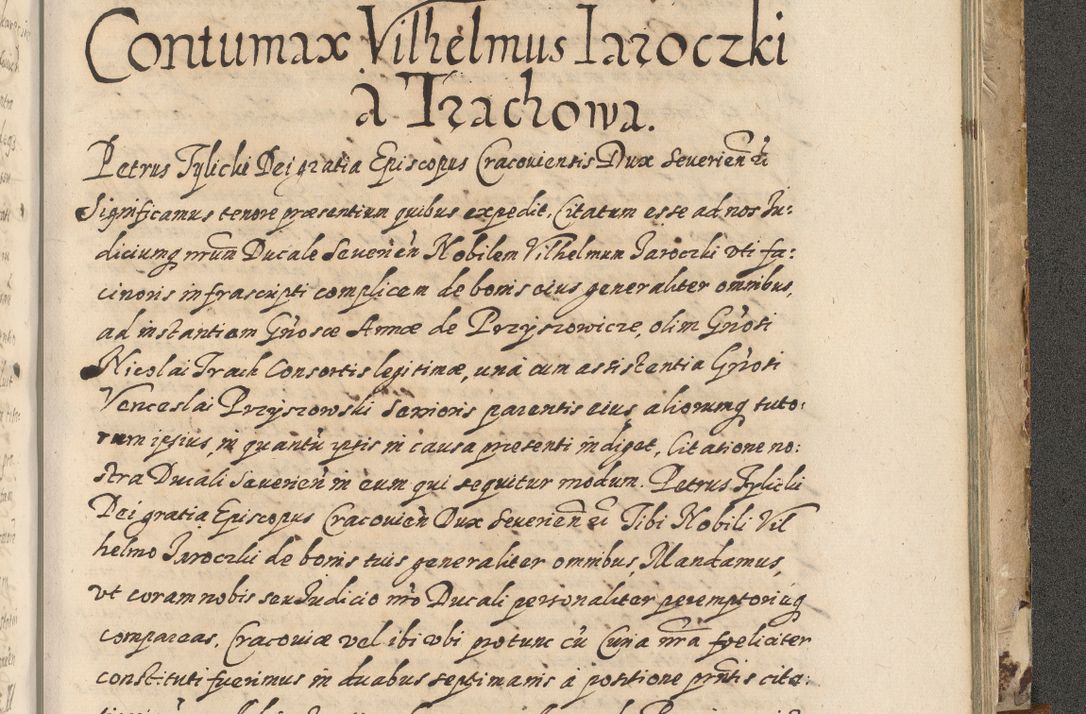 Contumax Vilhelmus Iaroczki
à Trachowa.
Petrus Tylicki Dei gratia Episcopus Cracoviensis Dux Severien̄ &c
Significamus tenore præsentium quibus expedit, Citatum esse ad nos Iu:
diciumq nr̄um Ducale Severien̄ Nobilem Vilhelmum Iaroczki vti fa:
cinoris infrascripti complicem de bonis eius generaliter omnibus,
ad instantiam Gn̄osæ Annæ de Przyszowicze, olim Gn̄osi
Nicolai Trach Consortis legitimæ, unà cum assistentia Gn̄osi
Venceslai Przyszowski Senioris parentis eius aliorumq tuto:
rum ipsius, in quantū ipsis in causa præsenti indiget, Citatione no:
stra Ducali Severien̄ in eum qui sequitur modum. Petrus Tylicki
Dei gratia Episcopus Cracovien̄ Dux Severien̄ &c Tibi Nobili Vil
helmo Iaroczki de bonis tuis generaliter omnibus, Mandamus,
vt coram nobis seu Iudicio nr̄o Ducali personaliter peremptorieq
compareas, Cracoviæ vel ibi vbi protunc cū Curia nr̄a fœliciter
constituti fuerimus in duabus septimanis à positione pn̄tis cita: